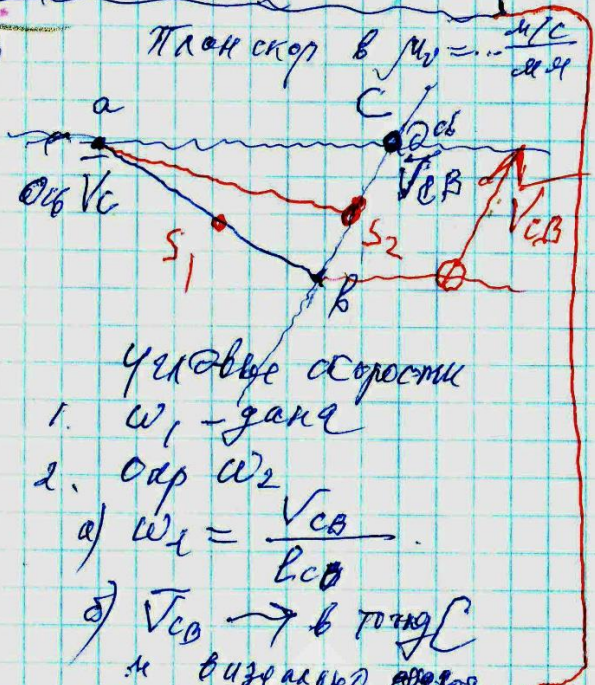 План скор в μv = ... м/с / мм
a
C
Ось V̄c
Ось V̄CB
S1
S2
VCB
b
Угловые скорости
1. ω1 - дана
2. Опр ω2
а) ω2 = VCB / lCB
б) V̄CB → в точку C
и визуально